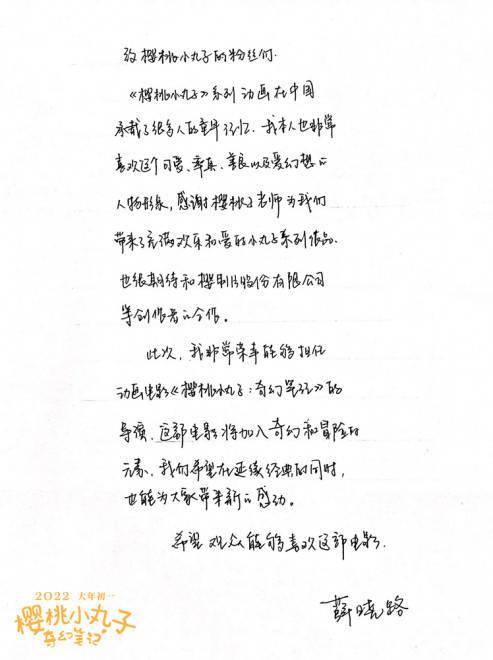 致樱桃小丸子的粉丝们.
《樱桃小丸子》系列动画在中国
承载了很多人的童年回忆. 我本人也非常
喜欢这个可爱、率真、善良以及爱幻想的
人物形象, 感谢樱桃子老师为我们
带来了充满欢乐和爱的小丸子系列作品.
也很期待和樱制作股份有限公司
等创作者的合作。
此次, 我非常荣幸能够担任
动画电影《樱桃小丸子: 奇幻笔记》的
导演, 这部电影将加入奇幻和冒险的
元素, 我们希望在延续经典的同时,
也能为大家带来新的感动。
希望观众能够喜欢这部电影.
薛晓路
2022 大年初一
樱桃小丸子
奇幻笔记